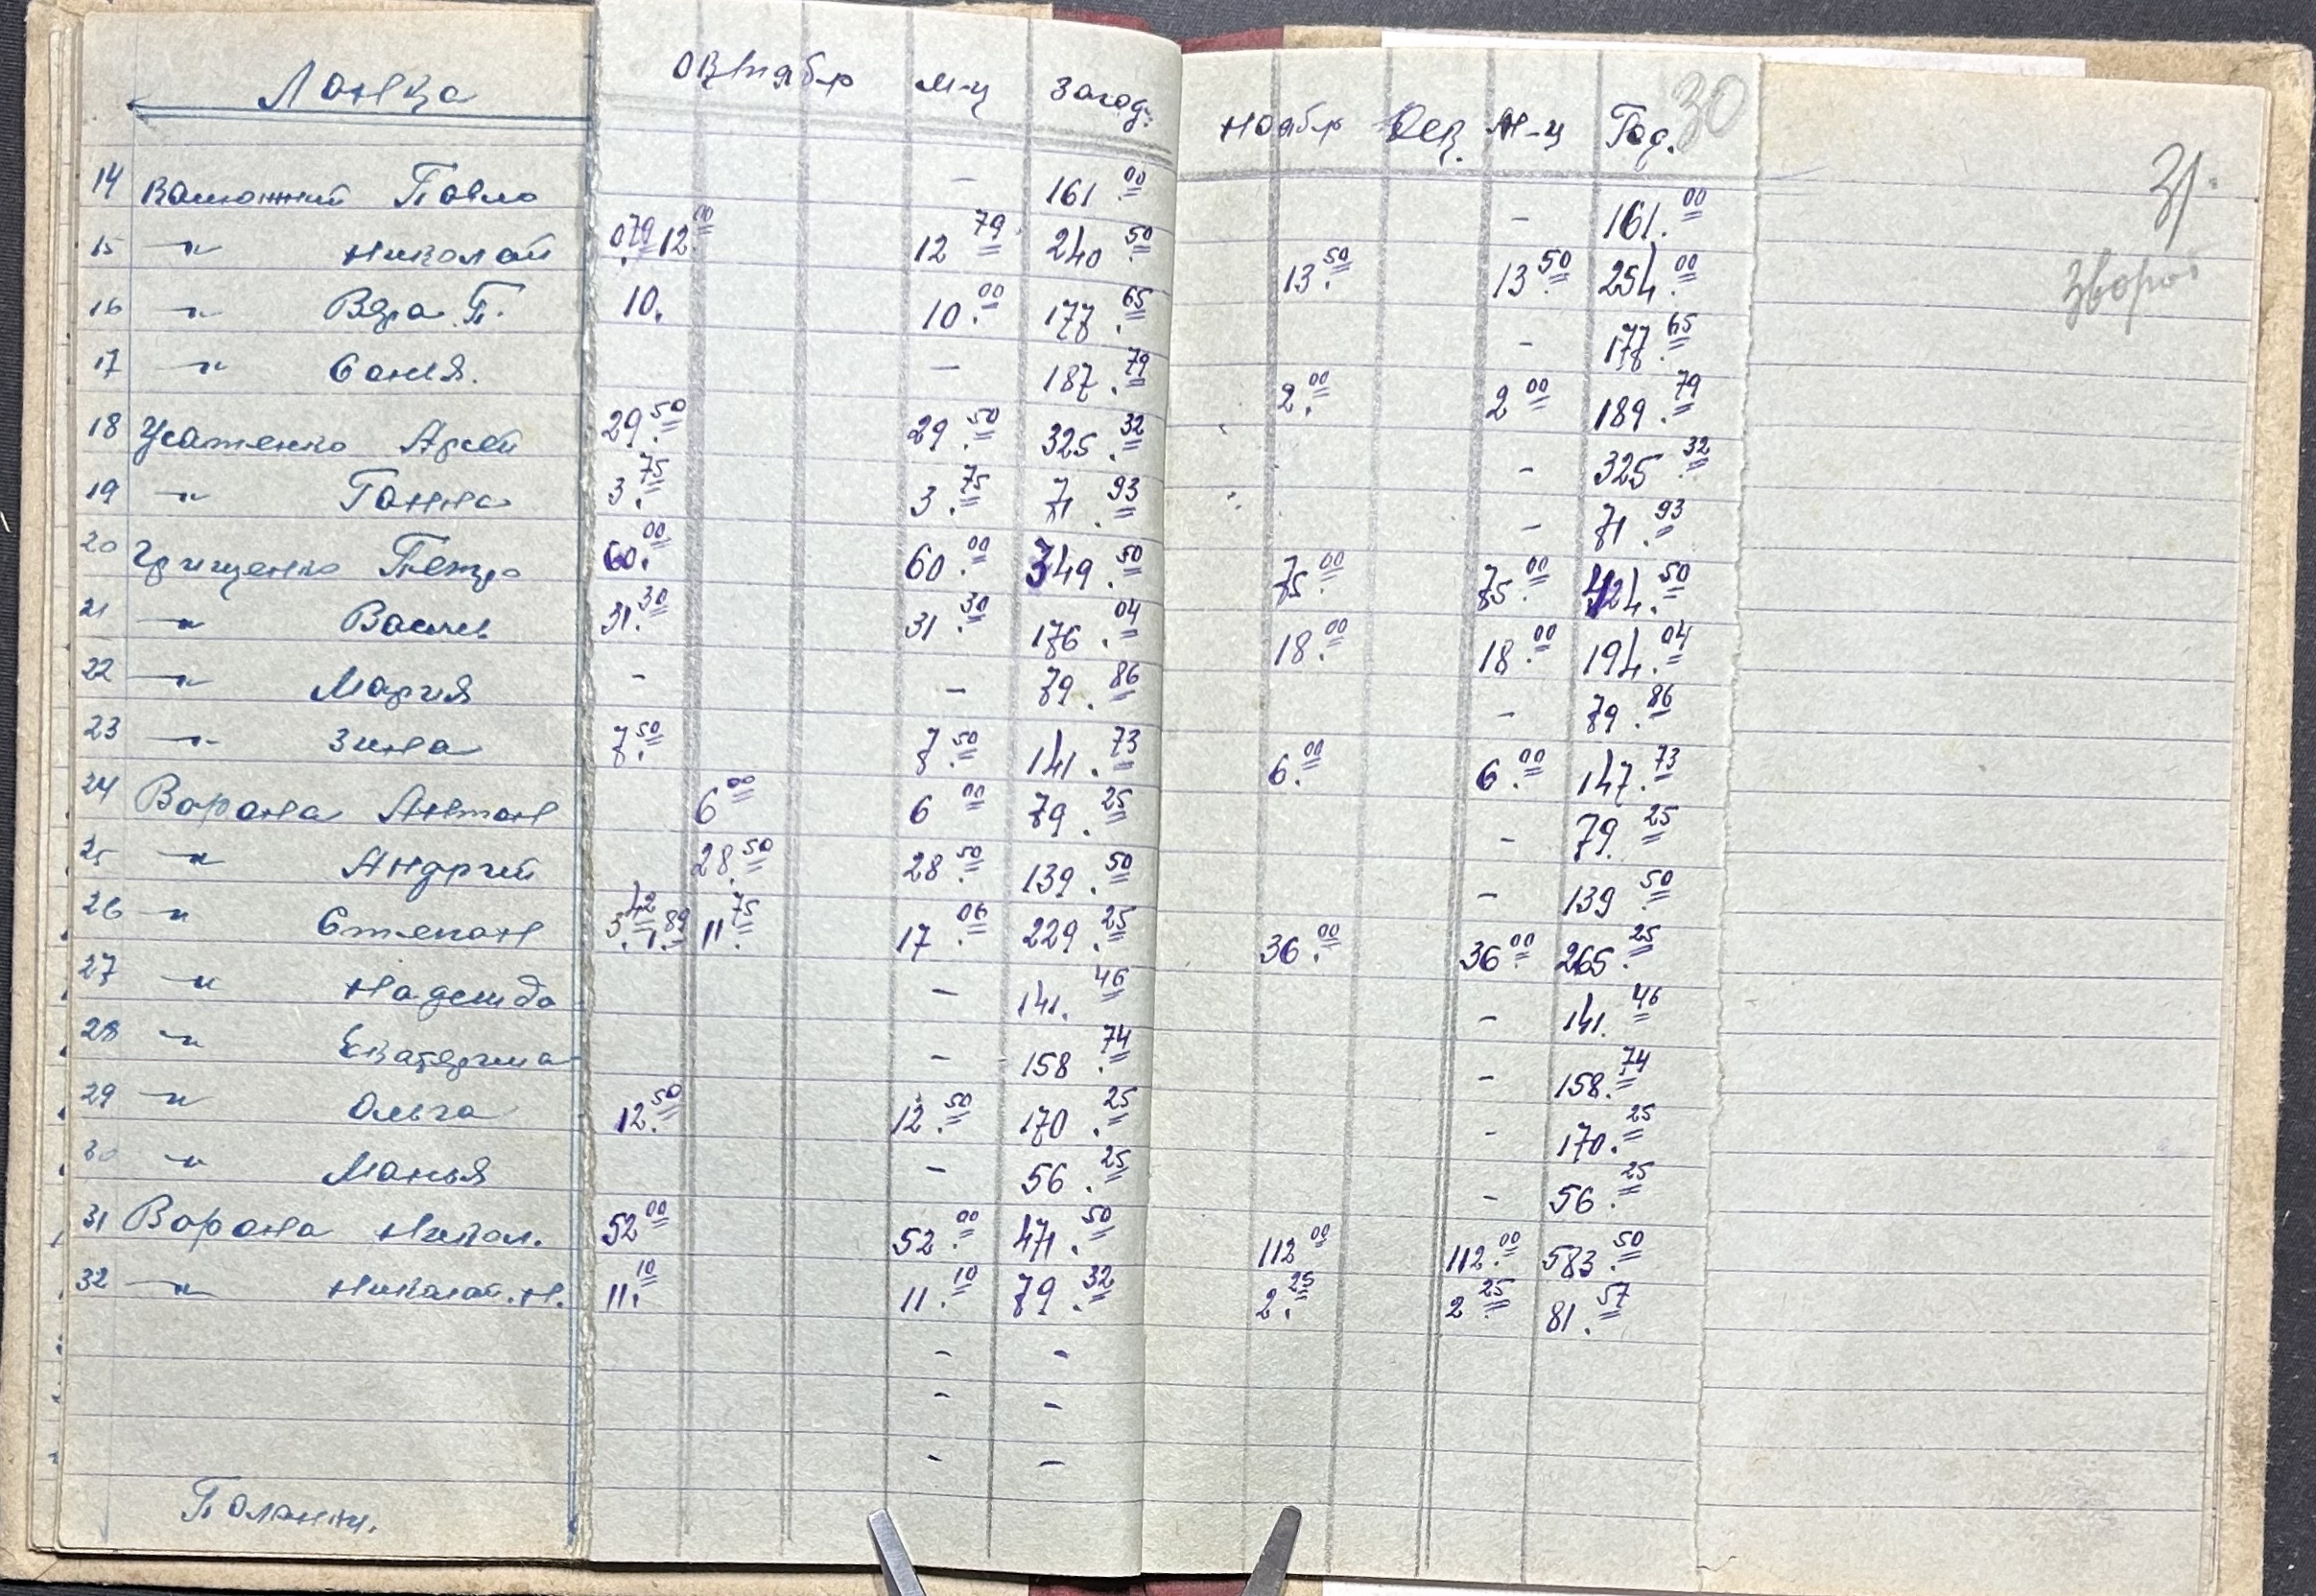 Ланка октябр м-ц Загод. ноябр Дек. м-ц Год. 30
31.
зворот
14 Калюжний Павло - 161.00 - 161.00
15 -"- Николай 0.79 12.00 12 79 240.50 13.50 13.50 254.00
16 -"- Вера П. 10. 10.00 177.65 - 177.65
17 -"- Соня. - 187.79 2.00 2 00 189.79
18 Усатенко Арсей 29.50 29.50 325.32 - 325 32
19 -"- Ганна 3.75 3.75 71.93 - 71.93
20 Грищенко Петро 60.00 60.00 349.50 75.00 75.00 424.50
21 -"- Василь 31.30 31.30 176.04 18.00 18.00 194.04
22 -"- Мария - - 79.86 - 79.86
23 -"- Зина 7.50 7.50 141.73 6.00 6.00 147.73
24 Ворона Антон 6 00 6 00 79.25 - 79.25
25 -"- Андрей 28.50 28.50 139.50 - 139.50
26 -"- Степан 3.42 1.89 11.75 17.06 229.25 36.00 36.00 265.25
27 -"- Надежда - 141.46 - 141.46
28 -"- Екатерина - 158.74 - 158.74
29 -"- Ольга 12.50 12.50 170.25 - 170.25
30 -"- Манья - 56.25 - 56.25
31 Ворона Никол. 52 00 52.00 471.50 112 00 112.00 583.50
32 -"- Николай.Н. 11.10 11.10 79.32 2.25 2 25 81.57
- -
- -
- -